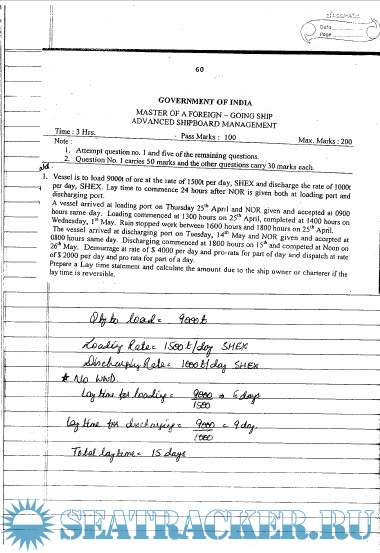 Date
Page
60
GOVERNMENT OF INDIA
MASTER OF A FOREIGN – GOING SHIP
ADVANCED SHIPBOARD MANAGEMENT
Time : 3 Hrs. Pass Marks : 100 Max. Marks : 200
Note :
1. Attempt question no. 1 and five of the remaining questions.
2. Question No. 1 carries 50 marks and the other questions carry 30 marks each.
1. Vessel is to load 9000t of ore at the rate of 1500t per day, SHEX and discharge the rate of 1000t
per day, SHEX. Lay time to commence 24 hours after NOR is given both at loading port and
discharging port.
A vessel arrived at loading port on Thursday 25th April and NOR given and accepted at 0900
hours same day. Loading commenced at 1300 hours on 25th April, completed at 1400 hours on
Wednesday, 1st May. Rain stopped work between 1600 hours and 1800 hours on 25th April.
The vessel arrived at discharging port on Tuesday, 14th May and NOR given and accepted at
0800 hours same day. Discharging commenced at 1800 hours on 15th and competed at Noon on
26th May. Demurrage at rate of $ 4000 per day and pro-rata for part of day and dispatch at rate
of $ 2000 per day and pro rata for part of a day.
Prepare a Lay time statement and calculate the amount due to the ship owner or charterer if the
lay time is reversible.
Qty to load = 9000t
Loading Rate = 1500t/day SHEX
Discharging Rate = 1000t/day SHEX
* NO WWD.
Lay time for loading = 9000/1500 = 6 days
Lay time for discharging = 9000/1000 = 9 day.
Total laytime = 15 days
SEATRACKER.RU